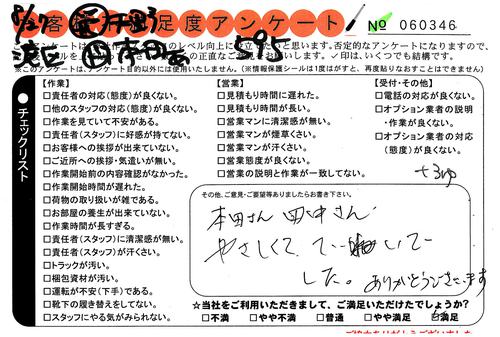 客様満足度アンケート
№ 060346
※このアンケートは、アンケート目的以外には使用いたしません。(※情報保護シールは1度はがすと、再度貼りなおすことはできません)
●チェックリスト
【作業】
□責任者の対応(態度)が良くない。
□他のスタッフの対応(態度)が良くない。
□作業を見ていて不安がある。
□責任者(スタッフ)に好感が持てない。
□お客様への挨拶が出来ていない。
□ご近所への挨拶・気遣いが無い。
□作業開始前の内容確認がなかった。
□作業開始時間が遅れた。
□荷物の取り扱いが雑である。
□お部屋の養生が出来ていない。
□作業時間が長すぎる。
□責任者(スタッフ)に清潔感が無い。
□責任者(スタッフ)が汗くさい。
□トラックが汚い。
□梱包資材が汚い。
□運転が不安(下手)である。
□靴下の履き替えをしてない。
□スタッフにやる気がみられない。
【営業】
□見積もり時間に遅れた。
□見積もり時間が長い。
□営業マンに清潔感が無い。
□営業マンが煙草くさい。
□営業マンが汗くさい。
□営業態度が良くない。
□営業の説明と作業が一致してない。
【受付・その他】
□電話の対応が良くない。
□オプション業者の説明
・作業が良くない。
□オプション業者の対応
(態度)が良くない。
その他、ご意見・ご要望等ありましたらお書き下さい。
本田さん 田中さん
やさしくて
した。ありがとうございます
☆当社をご利用いただきまして、ご満足いただけたでしょうか?
□不満 □やや不満 □普通 □やや満足 ☑満足